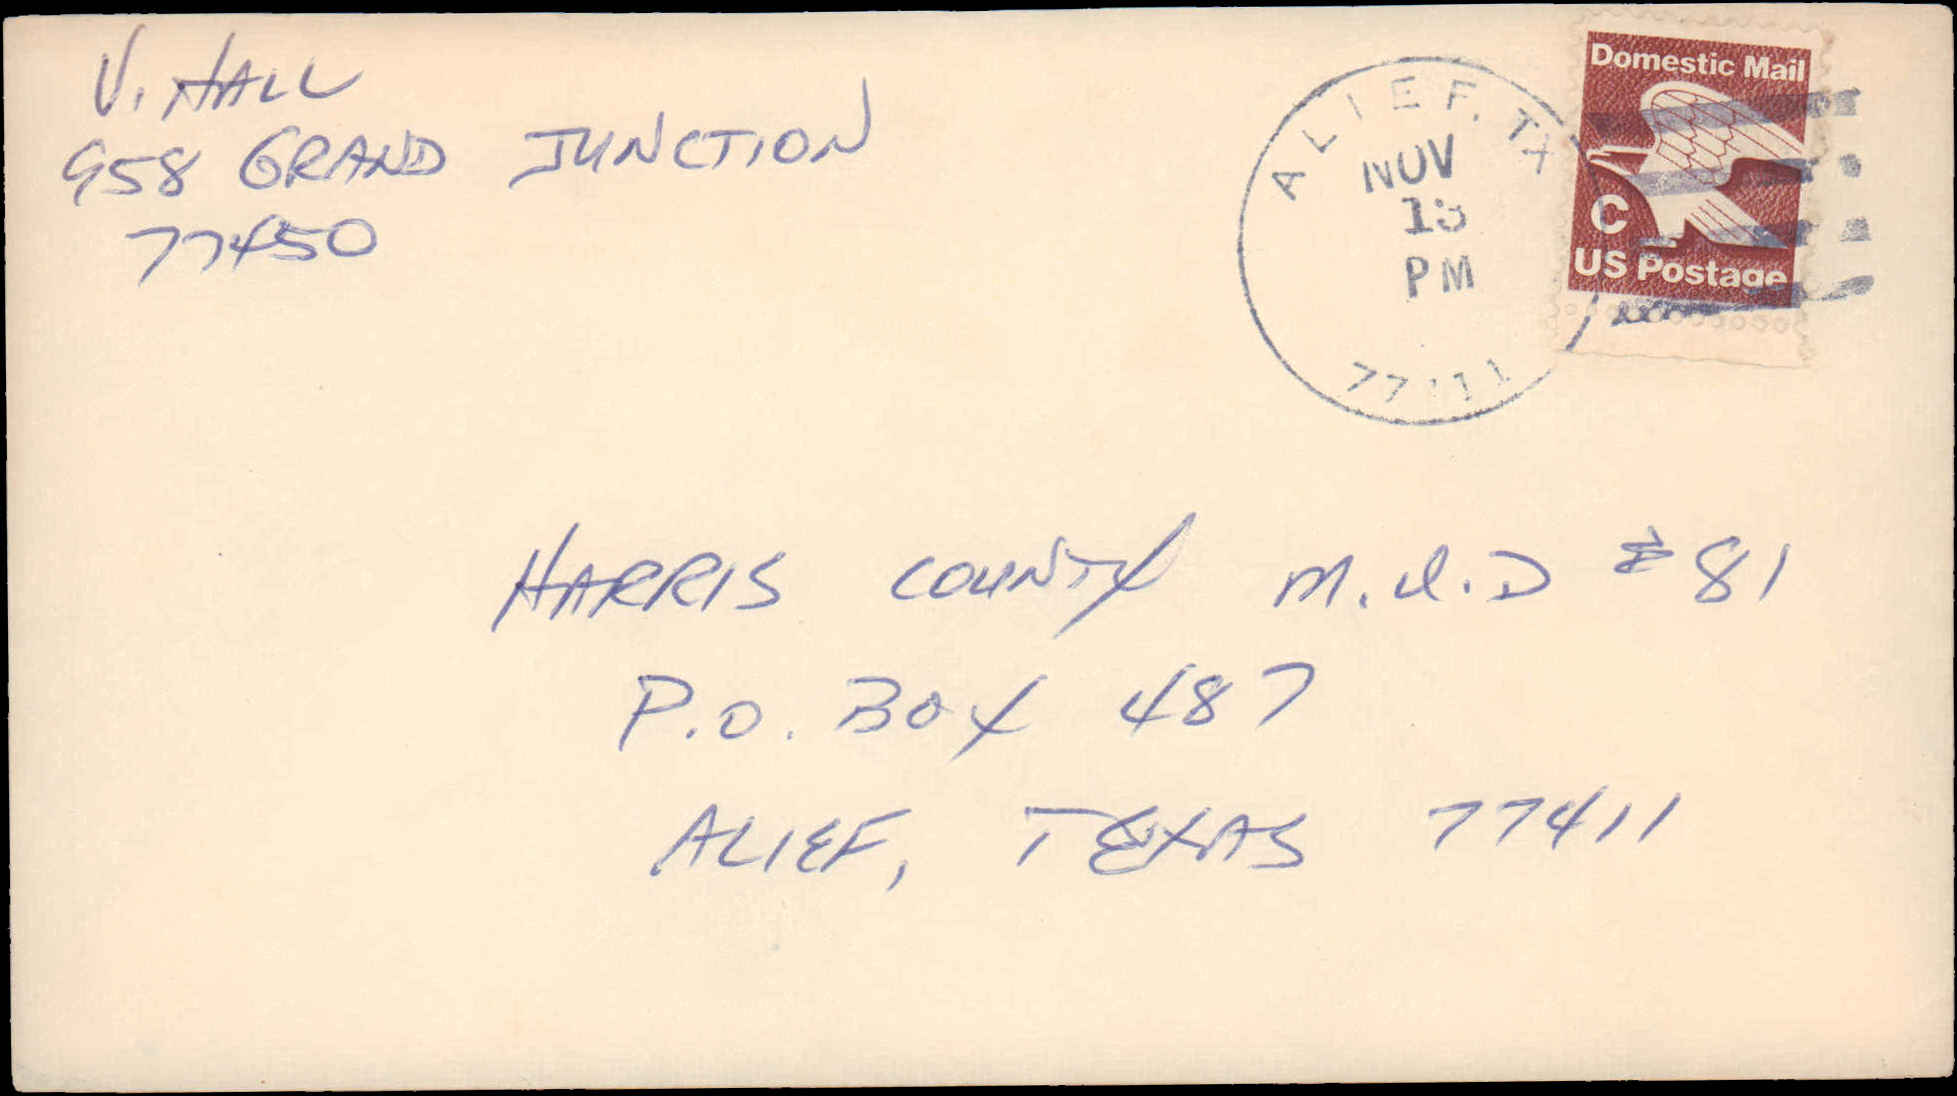 V. HALL
958 GRAND JUNCTION
77450
ALIEF, TX
NOV
13
PM
77411
Domestic Mail
C
US Postage
HARRIS COUNTY M.U.D #81
P.O. BOX 487
ALIEF, TEXAS 77411